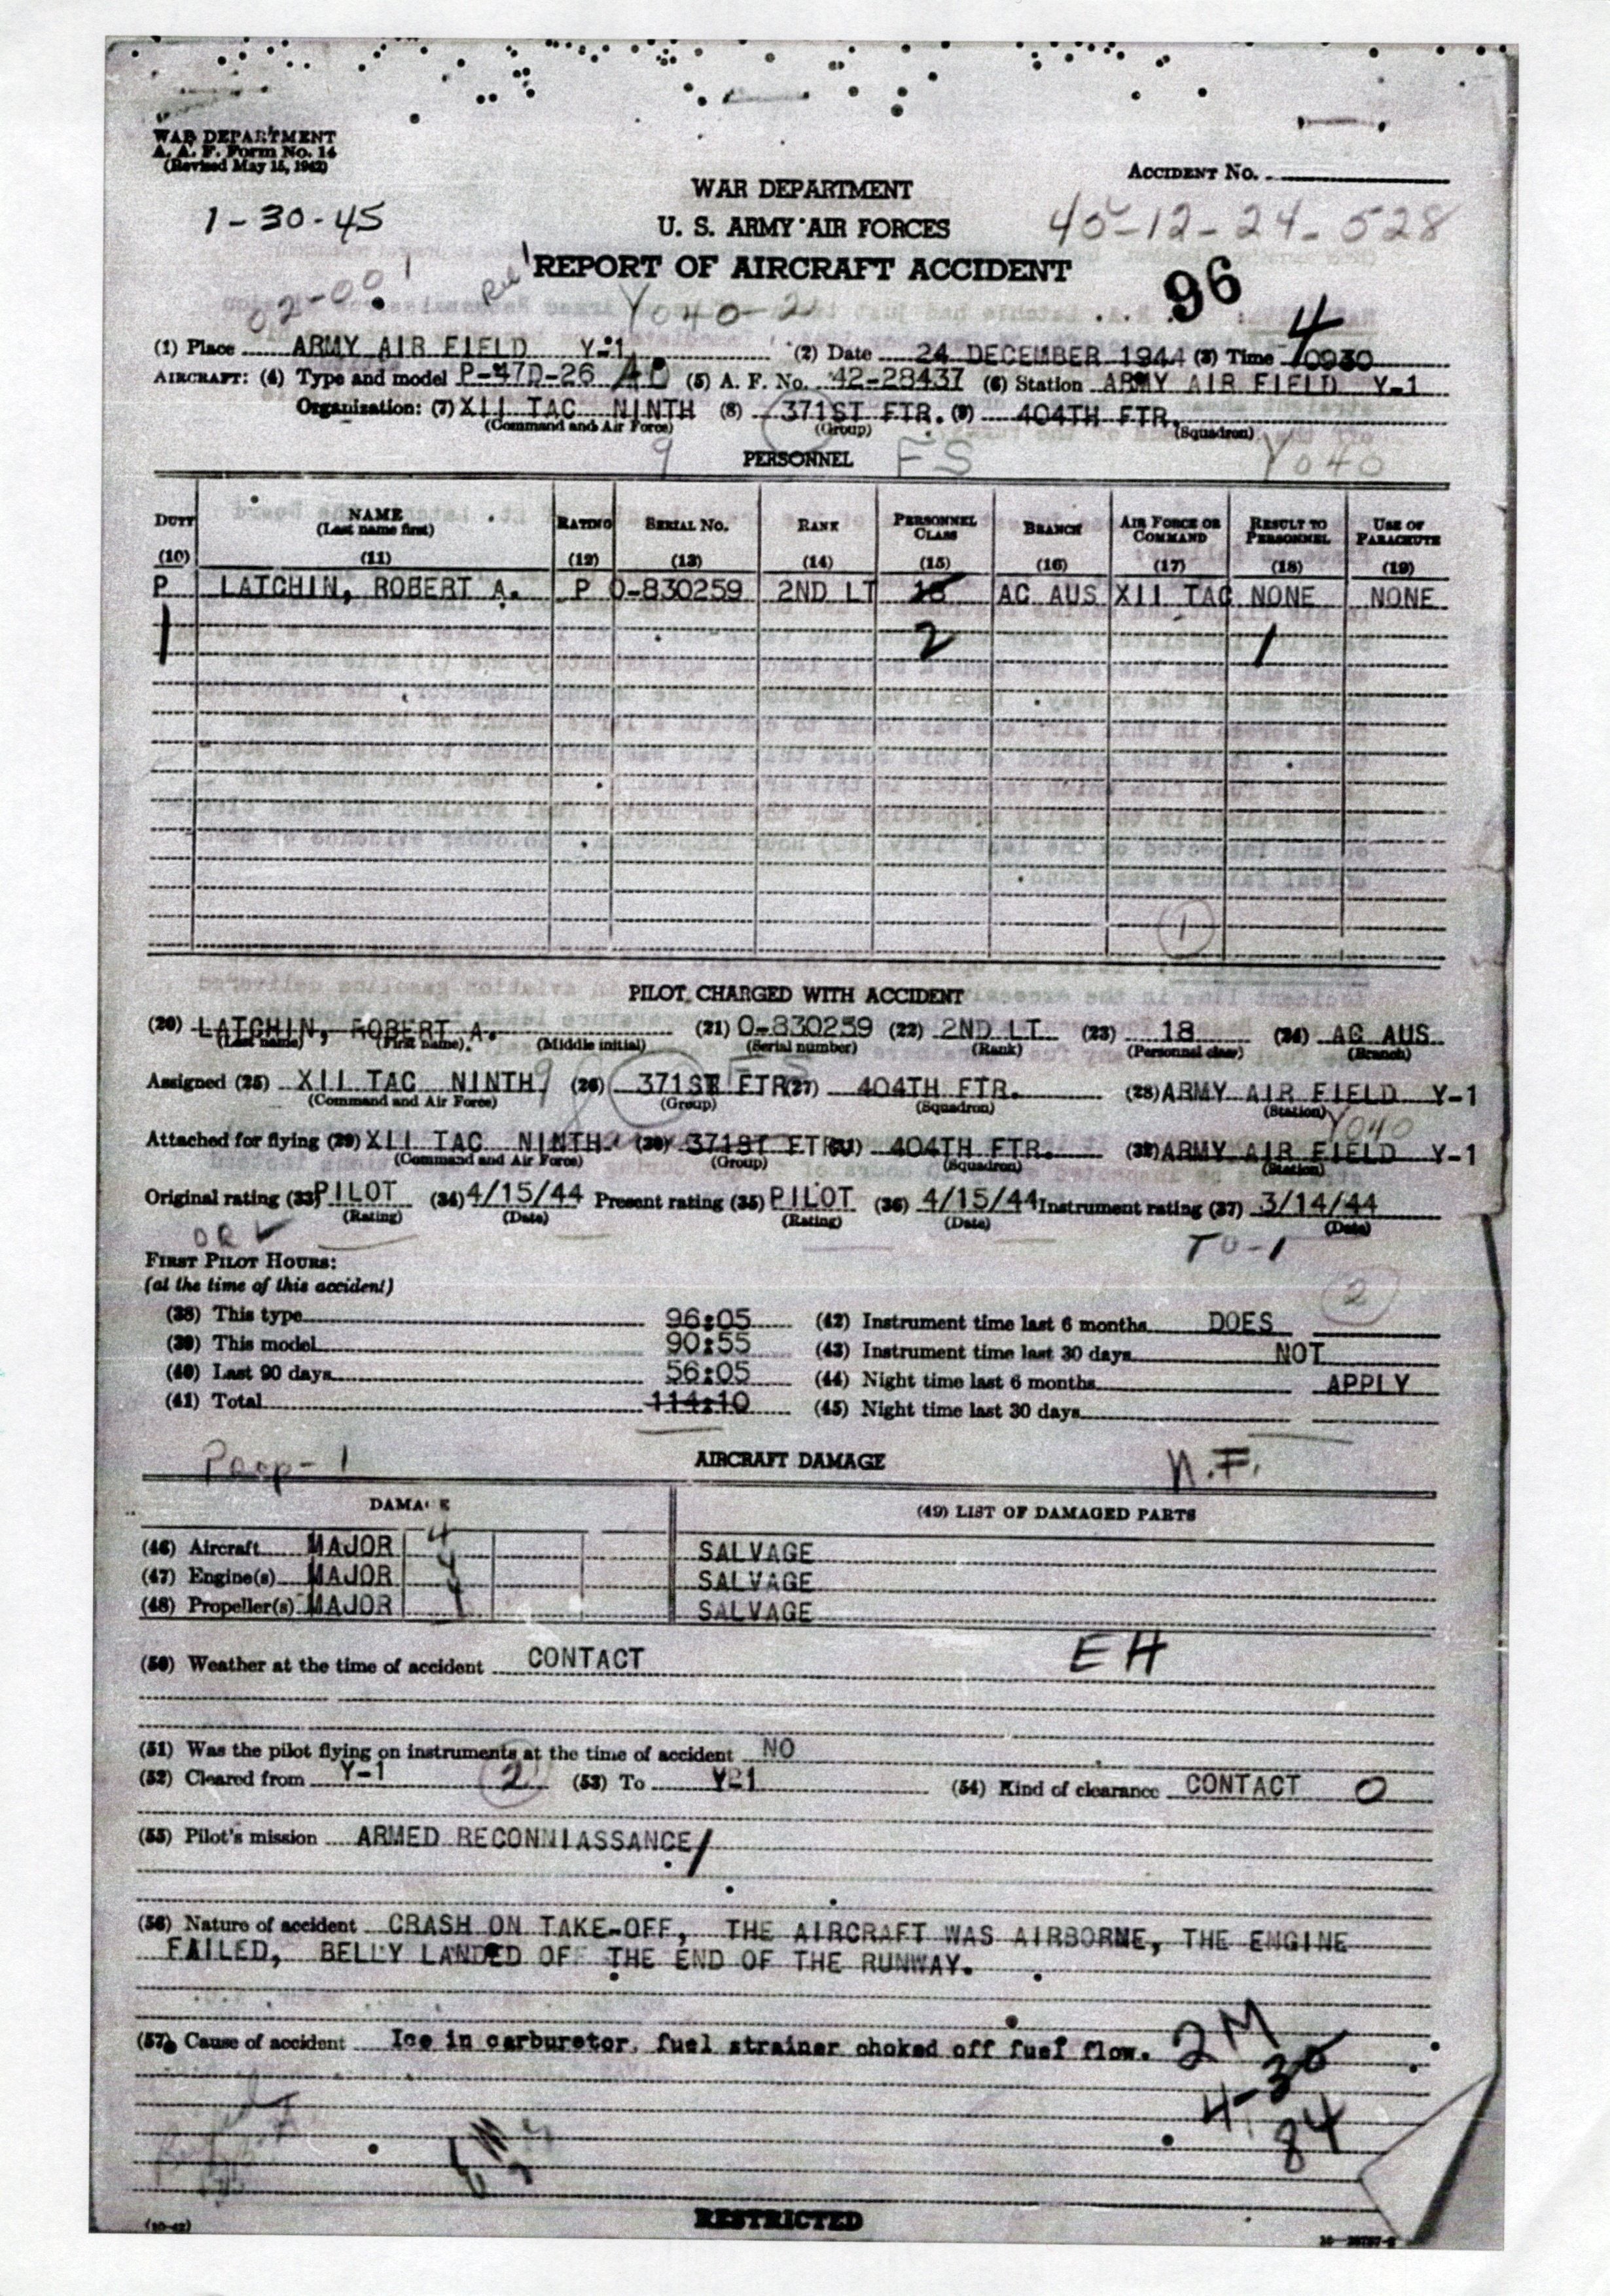 WAR DEPARTMENT
A. A. F. Form No. 14
(Revised May 15, 1942)
ACCIDENT No.
WAR DEPARTMENT
1-30-45
U. S. ARMY AIR FORCES
45-12-24-528
REPORT OF AIRCRAFT ACCIDENT
96
4
(1) Place ARMY AIR FIELD Y-1 (2) Date 24 DECEMBER 1944 (3) Time 0930
AIRCRAFT: (4) Type and model P-47D-26 (5) A. F. No. 42-28437 (6) Station ARMY AIR FIELD Y-1
Organization: (7) XII TAC NINTH (8) 371ST FTR. (9) 404TH FTR.
(Command and Air Force) (Group) (Squadron)
9 FS Y040
PERSONNEL
DUTY NAME (Last name first) RATING SERIAL No. RANK PERSONNEL CLASS BRANCH AIR FORCE OR COMMAND RESULT TO PERSONNEL USE OF PARACHUTE
(10) (11) (12) (13) (14) (15) (16) (17) (18) (19)
P LATCHIN, ROBERT A. P O-830259 2ND LT 18 AC AUS XII TAC NONE NONE
1 2 1
1
PILOT CHARGED WITH ACCIDENT
(20) LATCHIN, ROBERT A. (21) O-830259 (22) 2ND LT (23) 18 (24) AC AUS
(Last name) (First name) (Middle initial) (Serial number) (Rank) (Personnel class) (Branch)
Assigned (25) XII TAC NINTH (26) 371ST FTR (27) 404TH FTR. (28) ARMY AIR FIELD Y-1
(Command and Air Force) (Group) (Squadron) (Station)
Y040
Attached for flying (29) XII TAC NINTH (30) 371ST FTR (31) 404TH FTR. (32) ARMY AIR FIELD Y-1
(Command and Air Force) (Group) (Squadron) (Station)
Original rating (33) PILOT (34) 4/15/44 Present rating (35) PILOT (36) 4/15/44 Instrument rating (37) 3/14/44
(Rating) (Date) (Rating) (Date) (Date)
TO-1
FIRST PILOT HOURS:
(at the time of this accident)
2
(38) This type 96:05 (42) Instrument time last 6 months DOES
(39) This model 90:55 (43) Instrument time last 30 days NOT
(40) Last 90 days 56:05 (44) Night time last 6 months APPLY
(41) Total 114:10 (45) Night time last 30 days
AIRCRAFT DAMAGE
N.F.
DAMAGE (49) LIST OF DAMAGED PARTS
(46) Aircraft MAJOR 4 SALVAGE
(47) Engine(s) MAJOR 4 SALVAGE
(48) Propeller(s) MAJOR 4 SALVAGE
(50) Weather at the time of accident CONTACT
EH
(51) Was the pilot flying on instruments at the time of accident NO
(52) Cleared from Y-1 2 (53) To Y-1 (54) Kind of clearance CONTACT 0
(55) Pilot's mission ARMED RECONNIASSANCE 1
(56) Nature of accident CRASH ON TAKE-OFF, THE AIRCRAFT WAS AIRBORNE, THE ENGINE
FAILED, BELLY LANDED OFF THE END OF THE RUNWAY.
(57) Cause of accident Ice in carburetor, fuel strainer choked off fuel flow.
2M
4-30
84
RESTRICTED
(10-42)